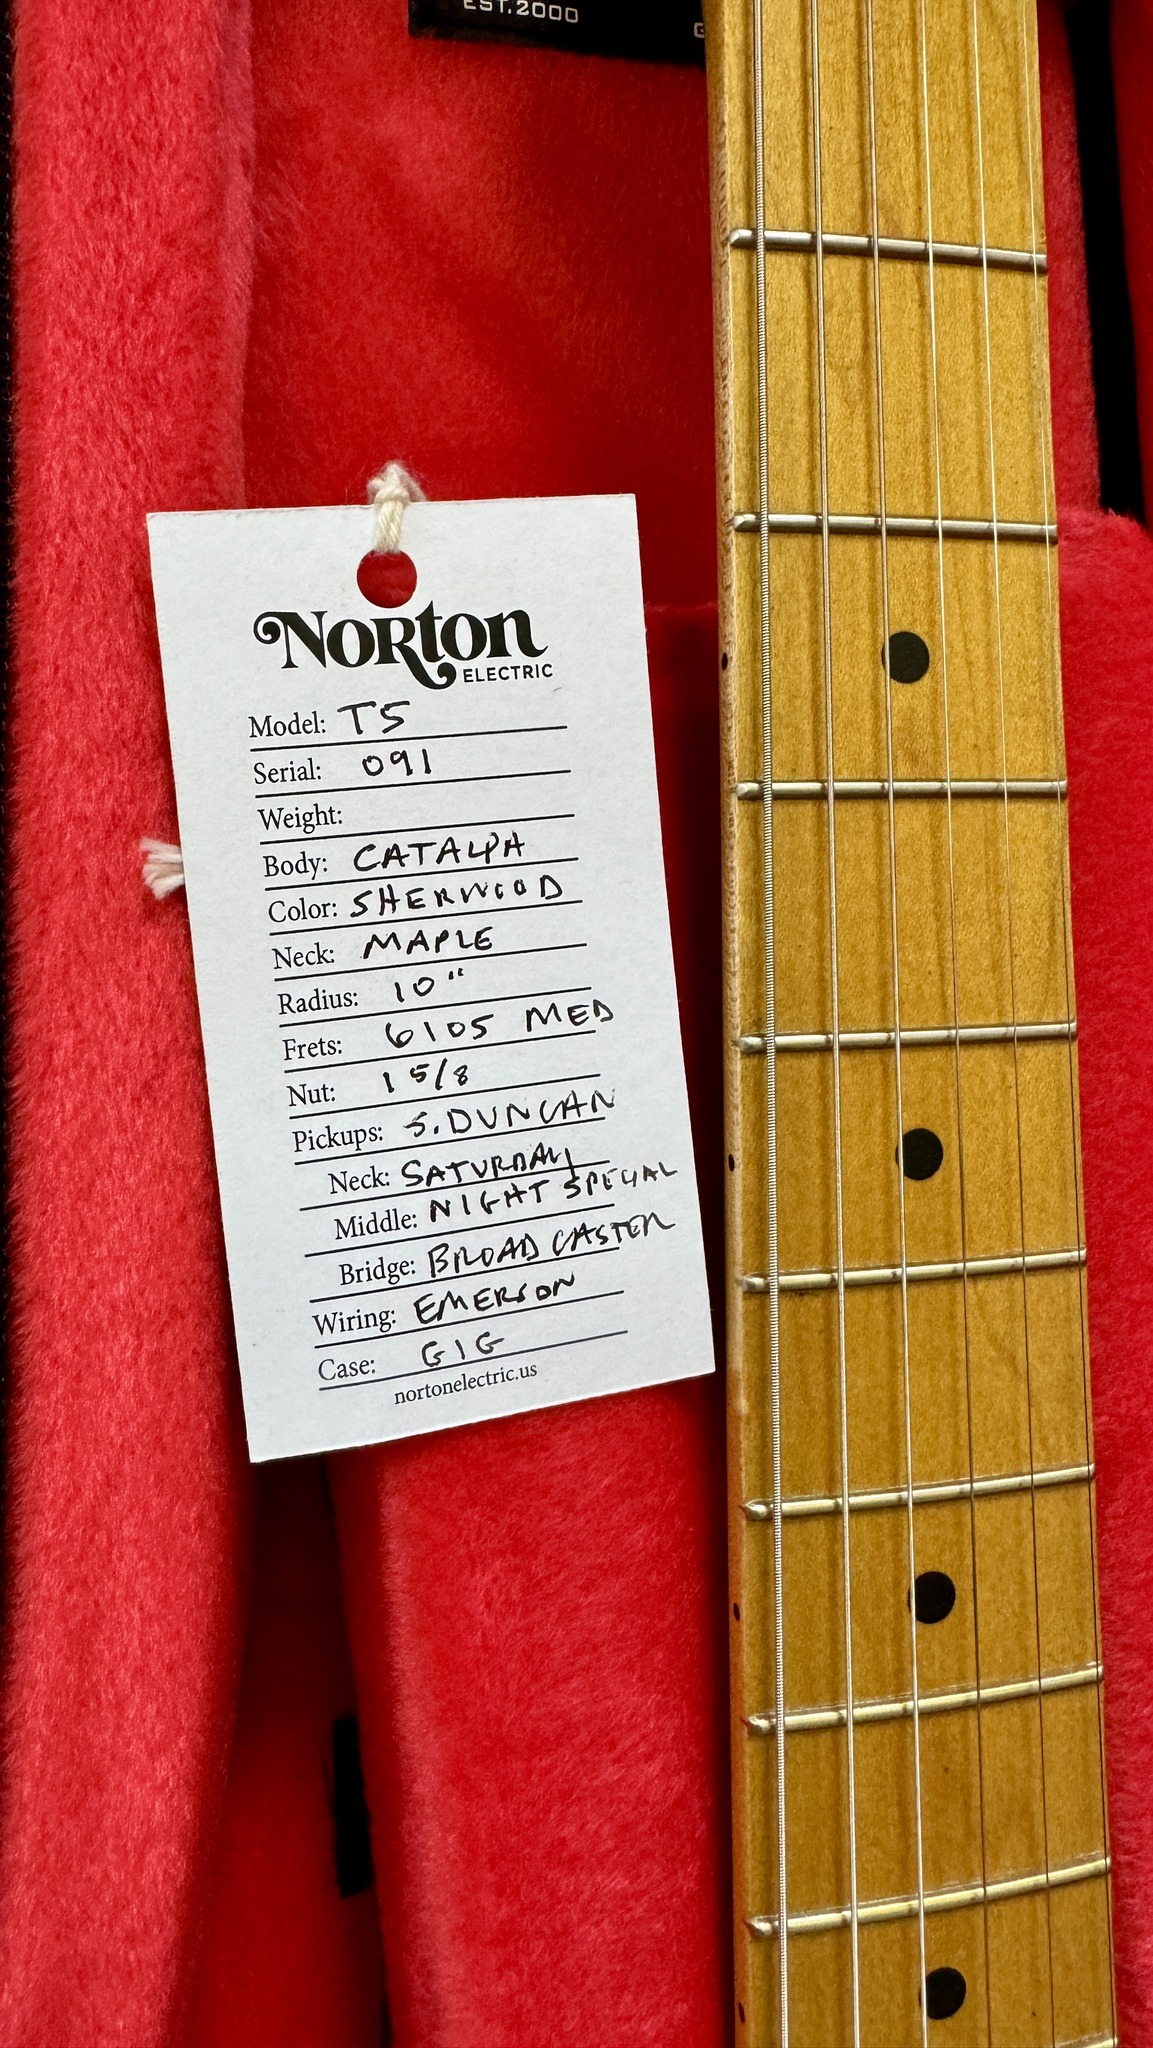 EST.2000
G
NORton
ELECTRIC
Model: T5
Serial: 091
Weight:
Body: CATALPA
Color: SHERWOOD
Neck: MAPLE
Radius: 10"
Frets: 6105 MED
Nut: 1 5/8
Pickups: S. DUNCAN
Neck: SATURDAY
Middle: NIGHT SPECIAL
Bridge: BROADCASTER
Wiring: EMERSON
Case: GIG
nortonelectric.us